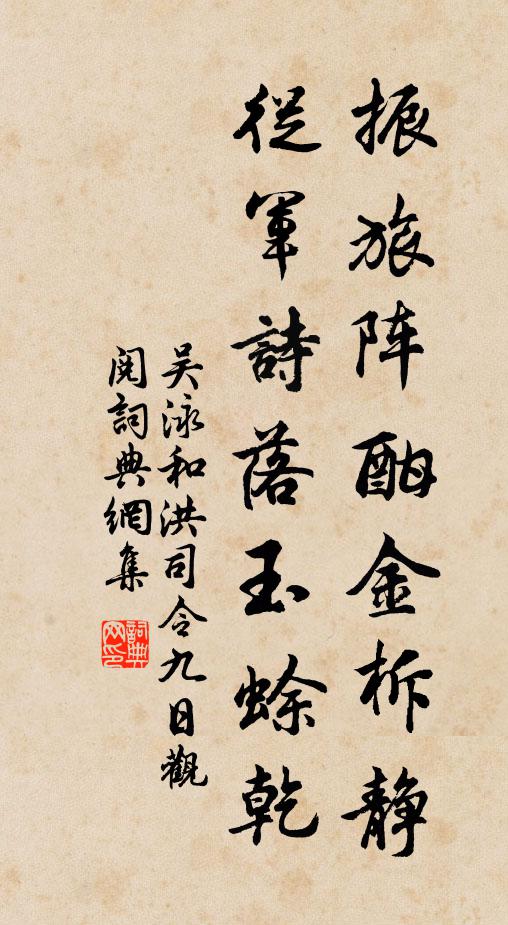 振旅阵酣金柝静
從軍詩落玉蜍乾
吴泳和洪司令九日觀
閱詞典網集
詞典网印